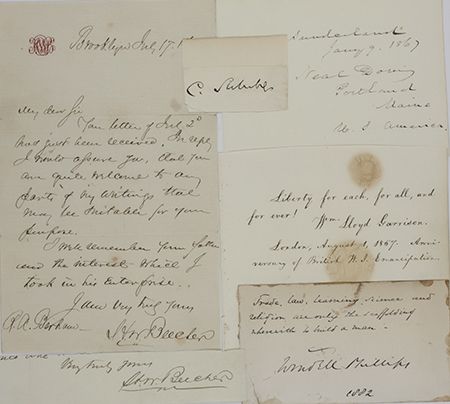 Brooklyn July 17.
My dear Sir
Your letter of July 2d
has just been received. In reply
I would assure you, that you
are quite welcome to any
parts of my writings that
may be suitable for your
purpose.
I well remember your father
and the interest which I
took in his enterprise.
I am very truly yours
H W Beecher
Very truly yours
H W Beecher
Sunderland
Jany 9. 1867
Neal Dow
Portland
Maine
U. S. America.
Liberty for each, for all, and
for ever!
Wm Lloyd Garrison.
London, August 1, 1867. Anni-
versary of British W. I. Emancipation.
Trade, law, learning, science and
religion are only the scaffolding
wherewith to build a man.
Wendell Phillips
1882